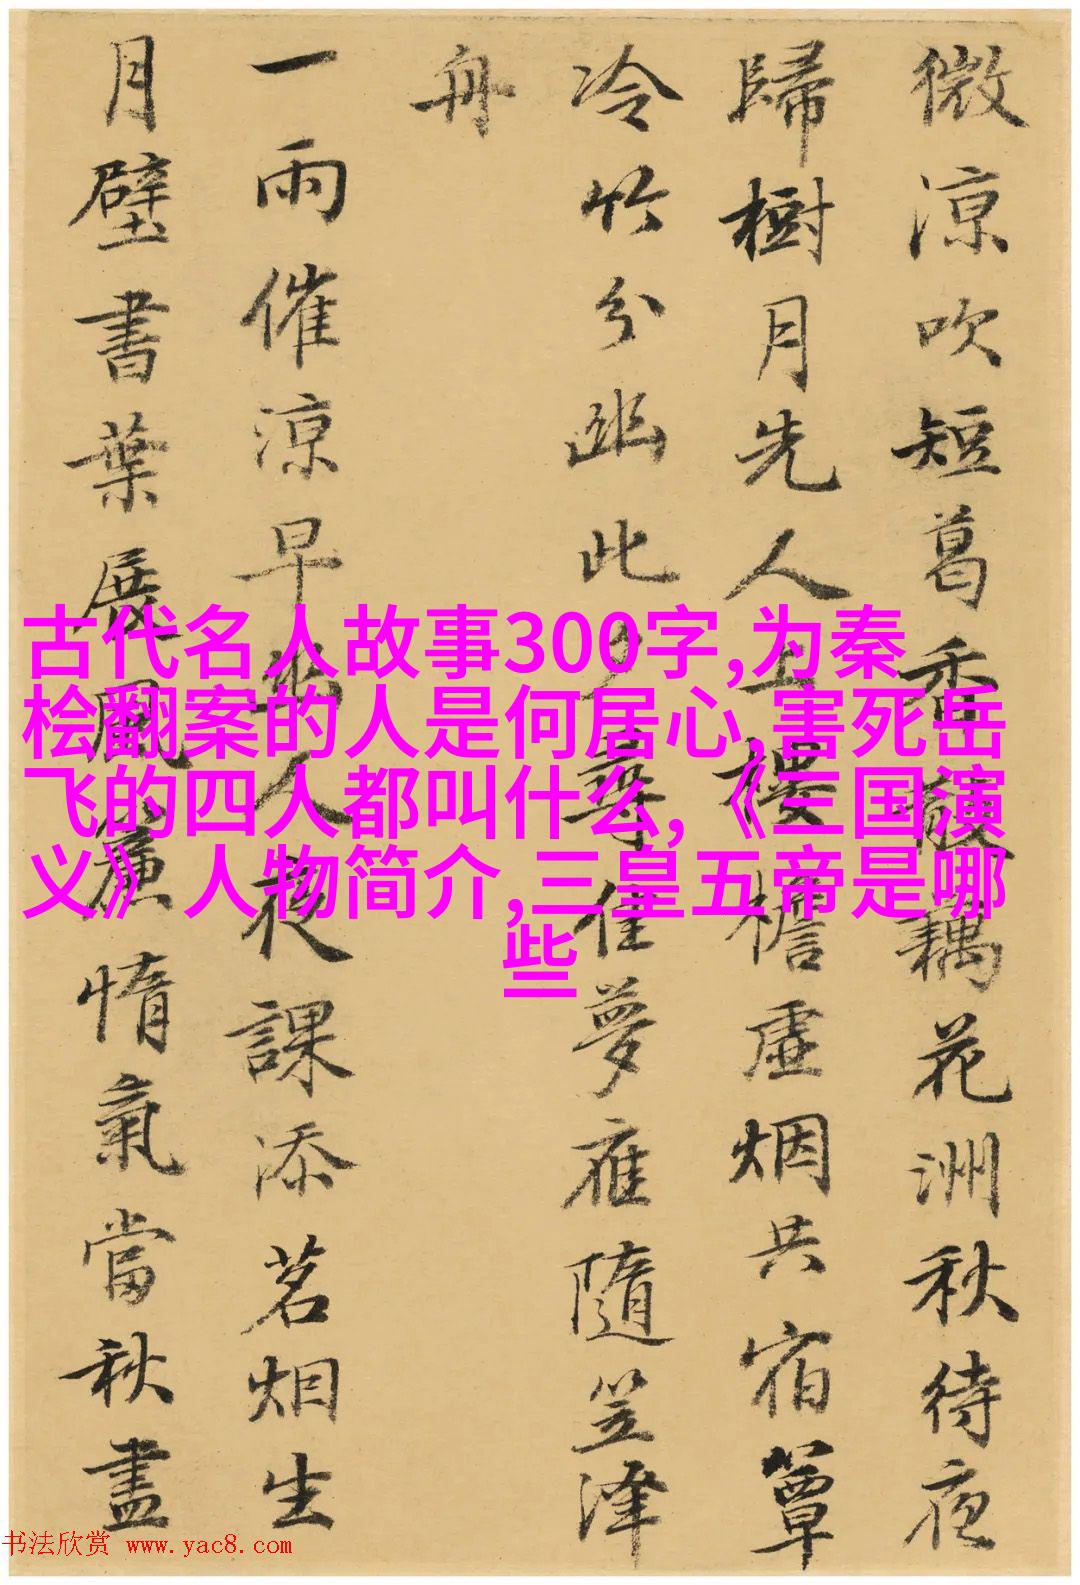 微涼吹短葛香散藕花洲秋待夜
歸樹月先人上樓檐虛烟共宿簟
冷竹分幽此夕尋佳夢應隨笠澤
舟
一雨催涼早幽人夜課添茗烟生
月壁書葉展風簾惰氣當秋盡
古代名人故事300字,为秦
桧翻案的人是何居心,害死岳
飞的四人都叫什么,《三国演
义》人物简介,三皇五帝是哪
些
书法欣赏 www.yac8.com